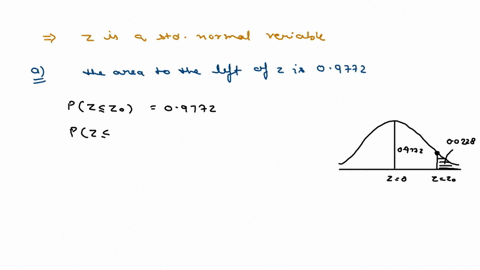 ⇒ z is a std. normal variable
a) the area to the left of z is 0.9772
P(Z ≤ Z₀) = 0.9772
P(Z ≤
0.9772
0.0228
Z=0
Z=Z₀